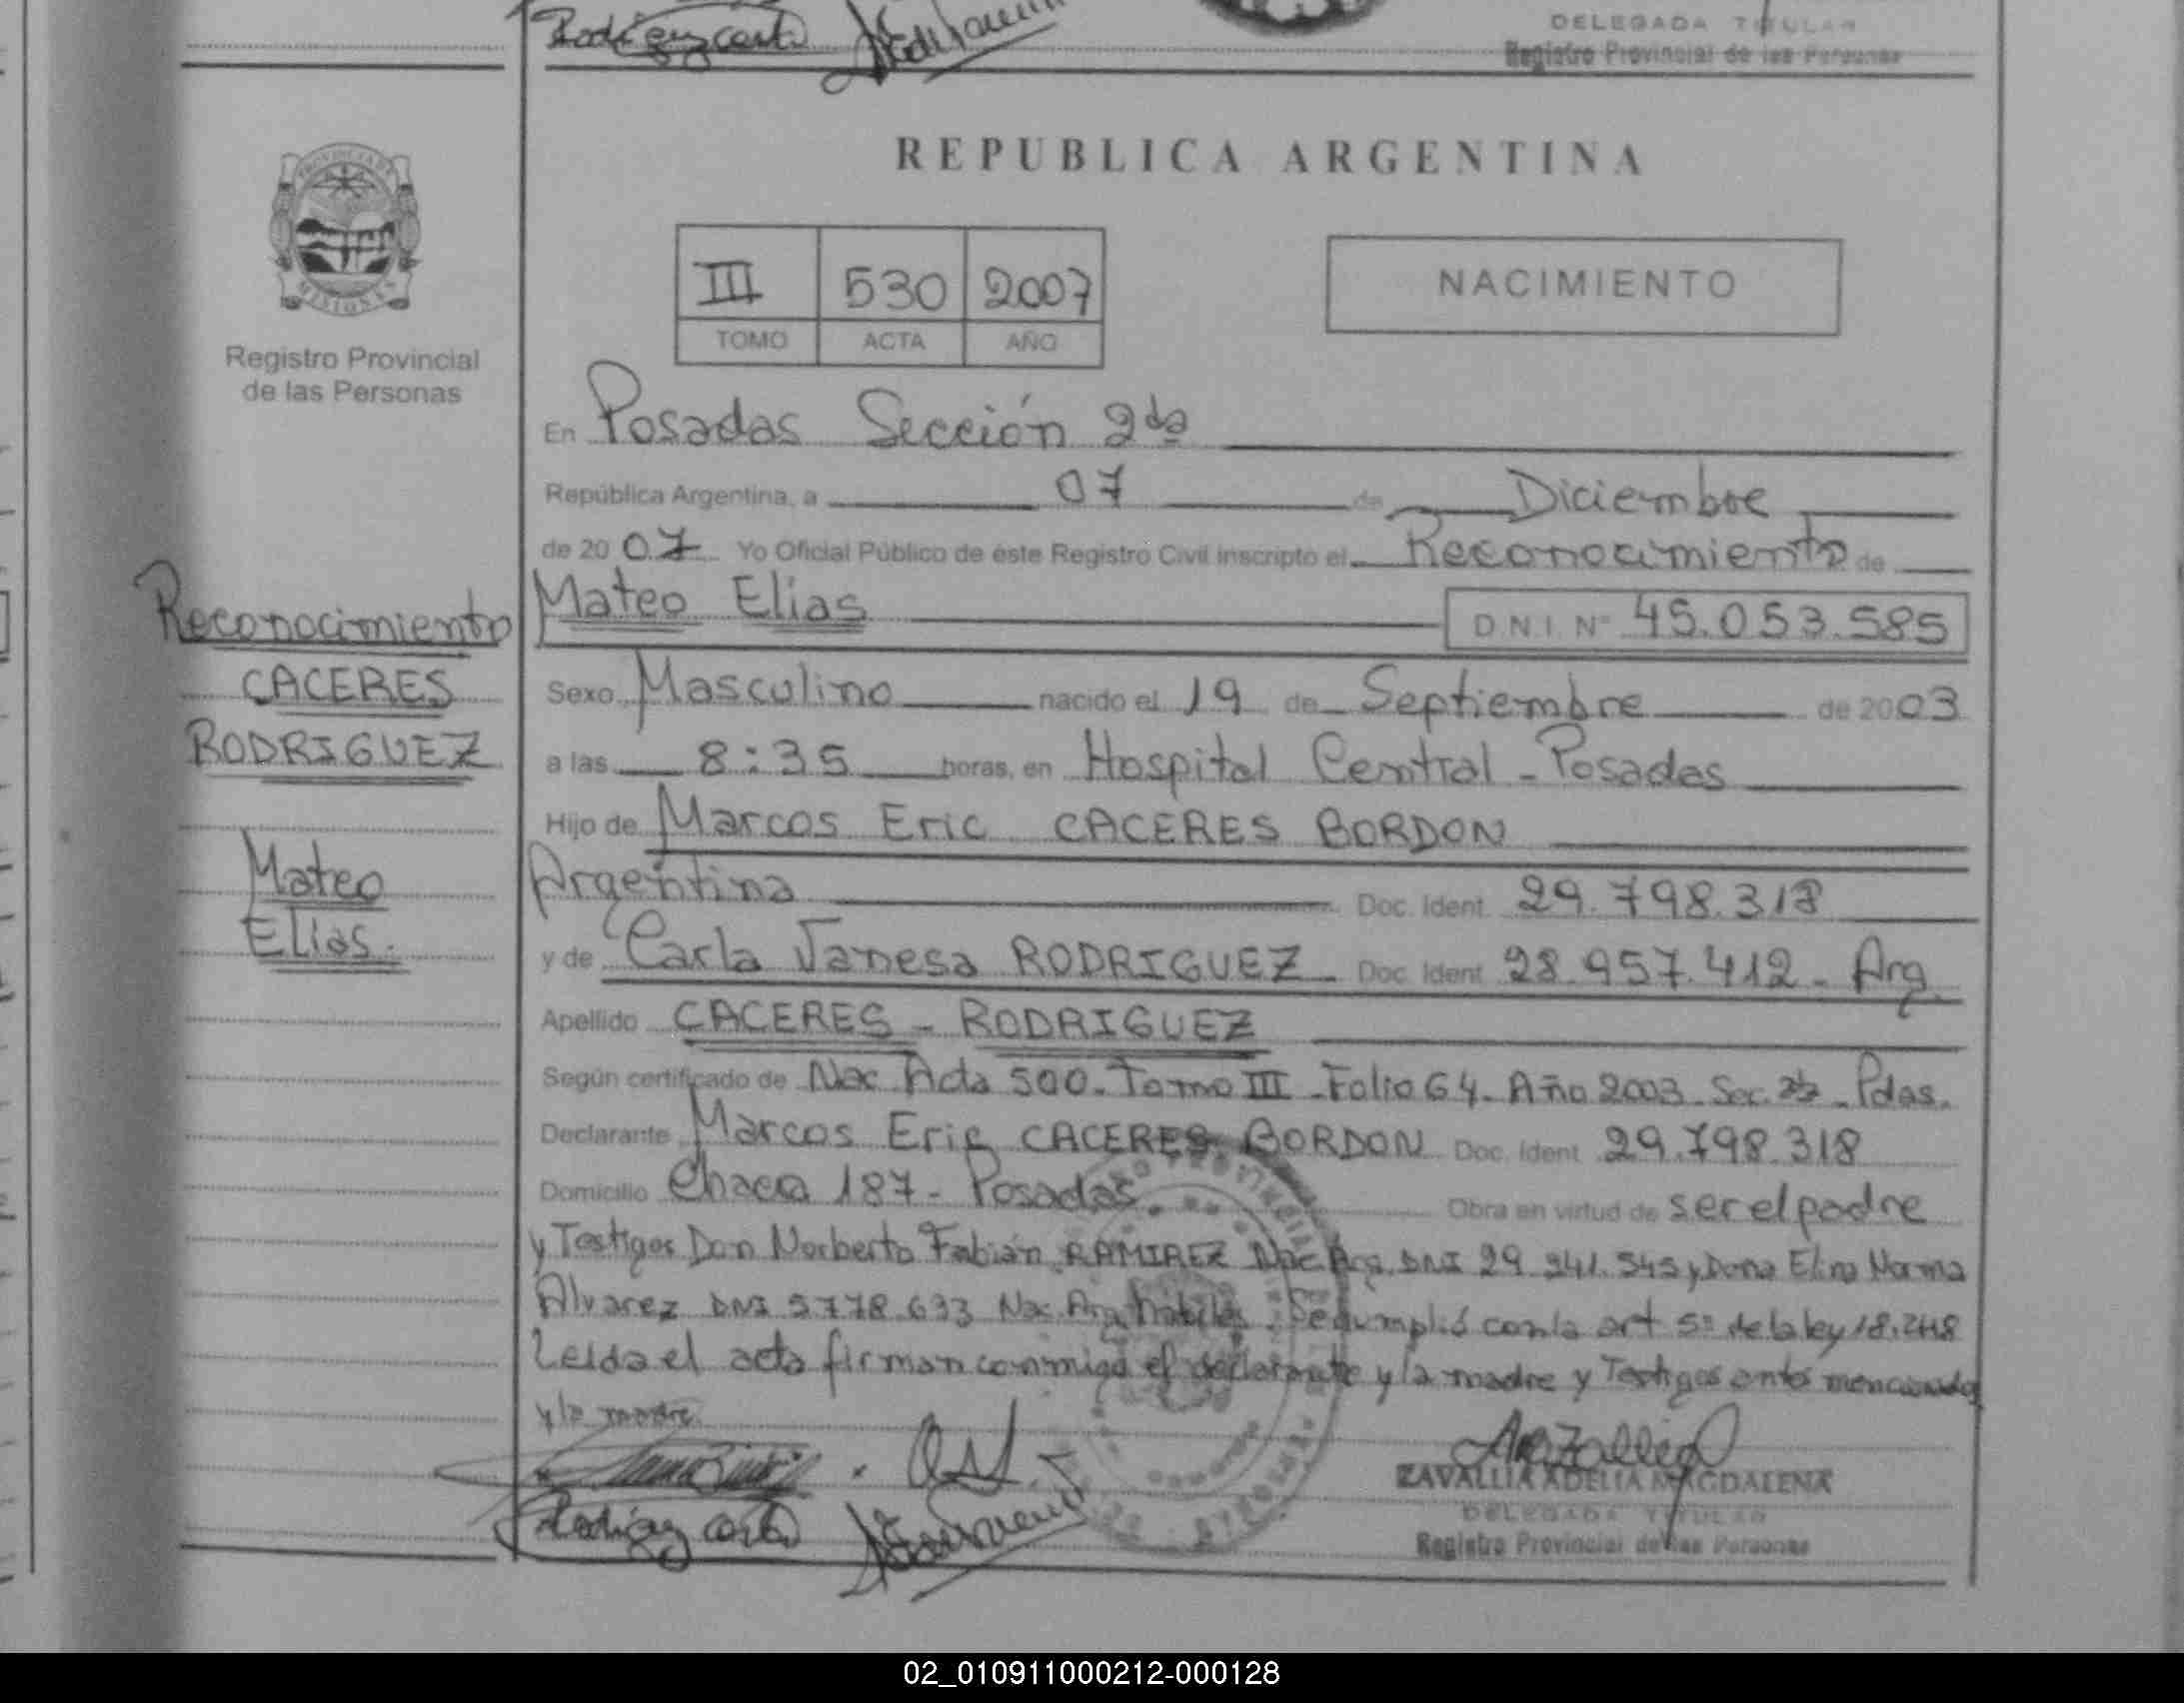 Rodriguez Carla
DELEGADA TITULAR
Registro Provincial de las Personas
PROVINCIA DE
MISIONES
Registro Provincial
de las Personas
REPUBLICA ARGENTINA
III 530 2007
TOMO ACTA AÑO
NACIMIENTO
En Posadas Sección 2da
República Argentina, a 07 de Diciembre
de 2007 Yo Oficial Público de éste Registro Civil inscripto el Reconocimiento de
Mateo Elias D.N.I. Nº 45.053.585
Reconocimiento
CACERES
RODRIGUEZ
Mateo
Elias.
Sexo Masculino nacido el 19 de Septiembre de 2003
a las 8:35 horas, en Hospital Central - Posadas
Hijo de Marcos Eric CACERES BORDON
Argentina Doc. Ident. 29.798.318
y de Carla Vanesa RODRIGUEZ Doc. Ident. 28.957.412 - Arg.
Apellido CACERES - RODRIGUEZ
Según certificado de Nac. Acta 500 - Tomo III - Folio 64 - Año 2003 - Sec. - Pdas.
Declarante Marcos Eric CACERES BORDON Doc. Ident. 29.798.318
Domicilio Chacra 187 - Posadas Obra en virtud de ser el padre
y Testigos Don Norberto Fabián RAMIREZ Nac. Arg. DNI 29.341.545 y Doña Elina Norma
Alvarez DNI 5.778.633 Nac. Arg. habiles. Se cumplió con la art 5º de la ley 18.248
Leida el acta firman conmigo el declarante y la madre y Testigos antes mencionados
y la madre.
Rodriguez Carla
ZAVALLIA ADELIA MAGDALENA
DELEGADA TITULAR
Registro Provincial de las Personas
02_010911000212-000128